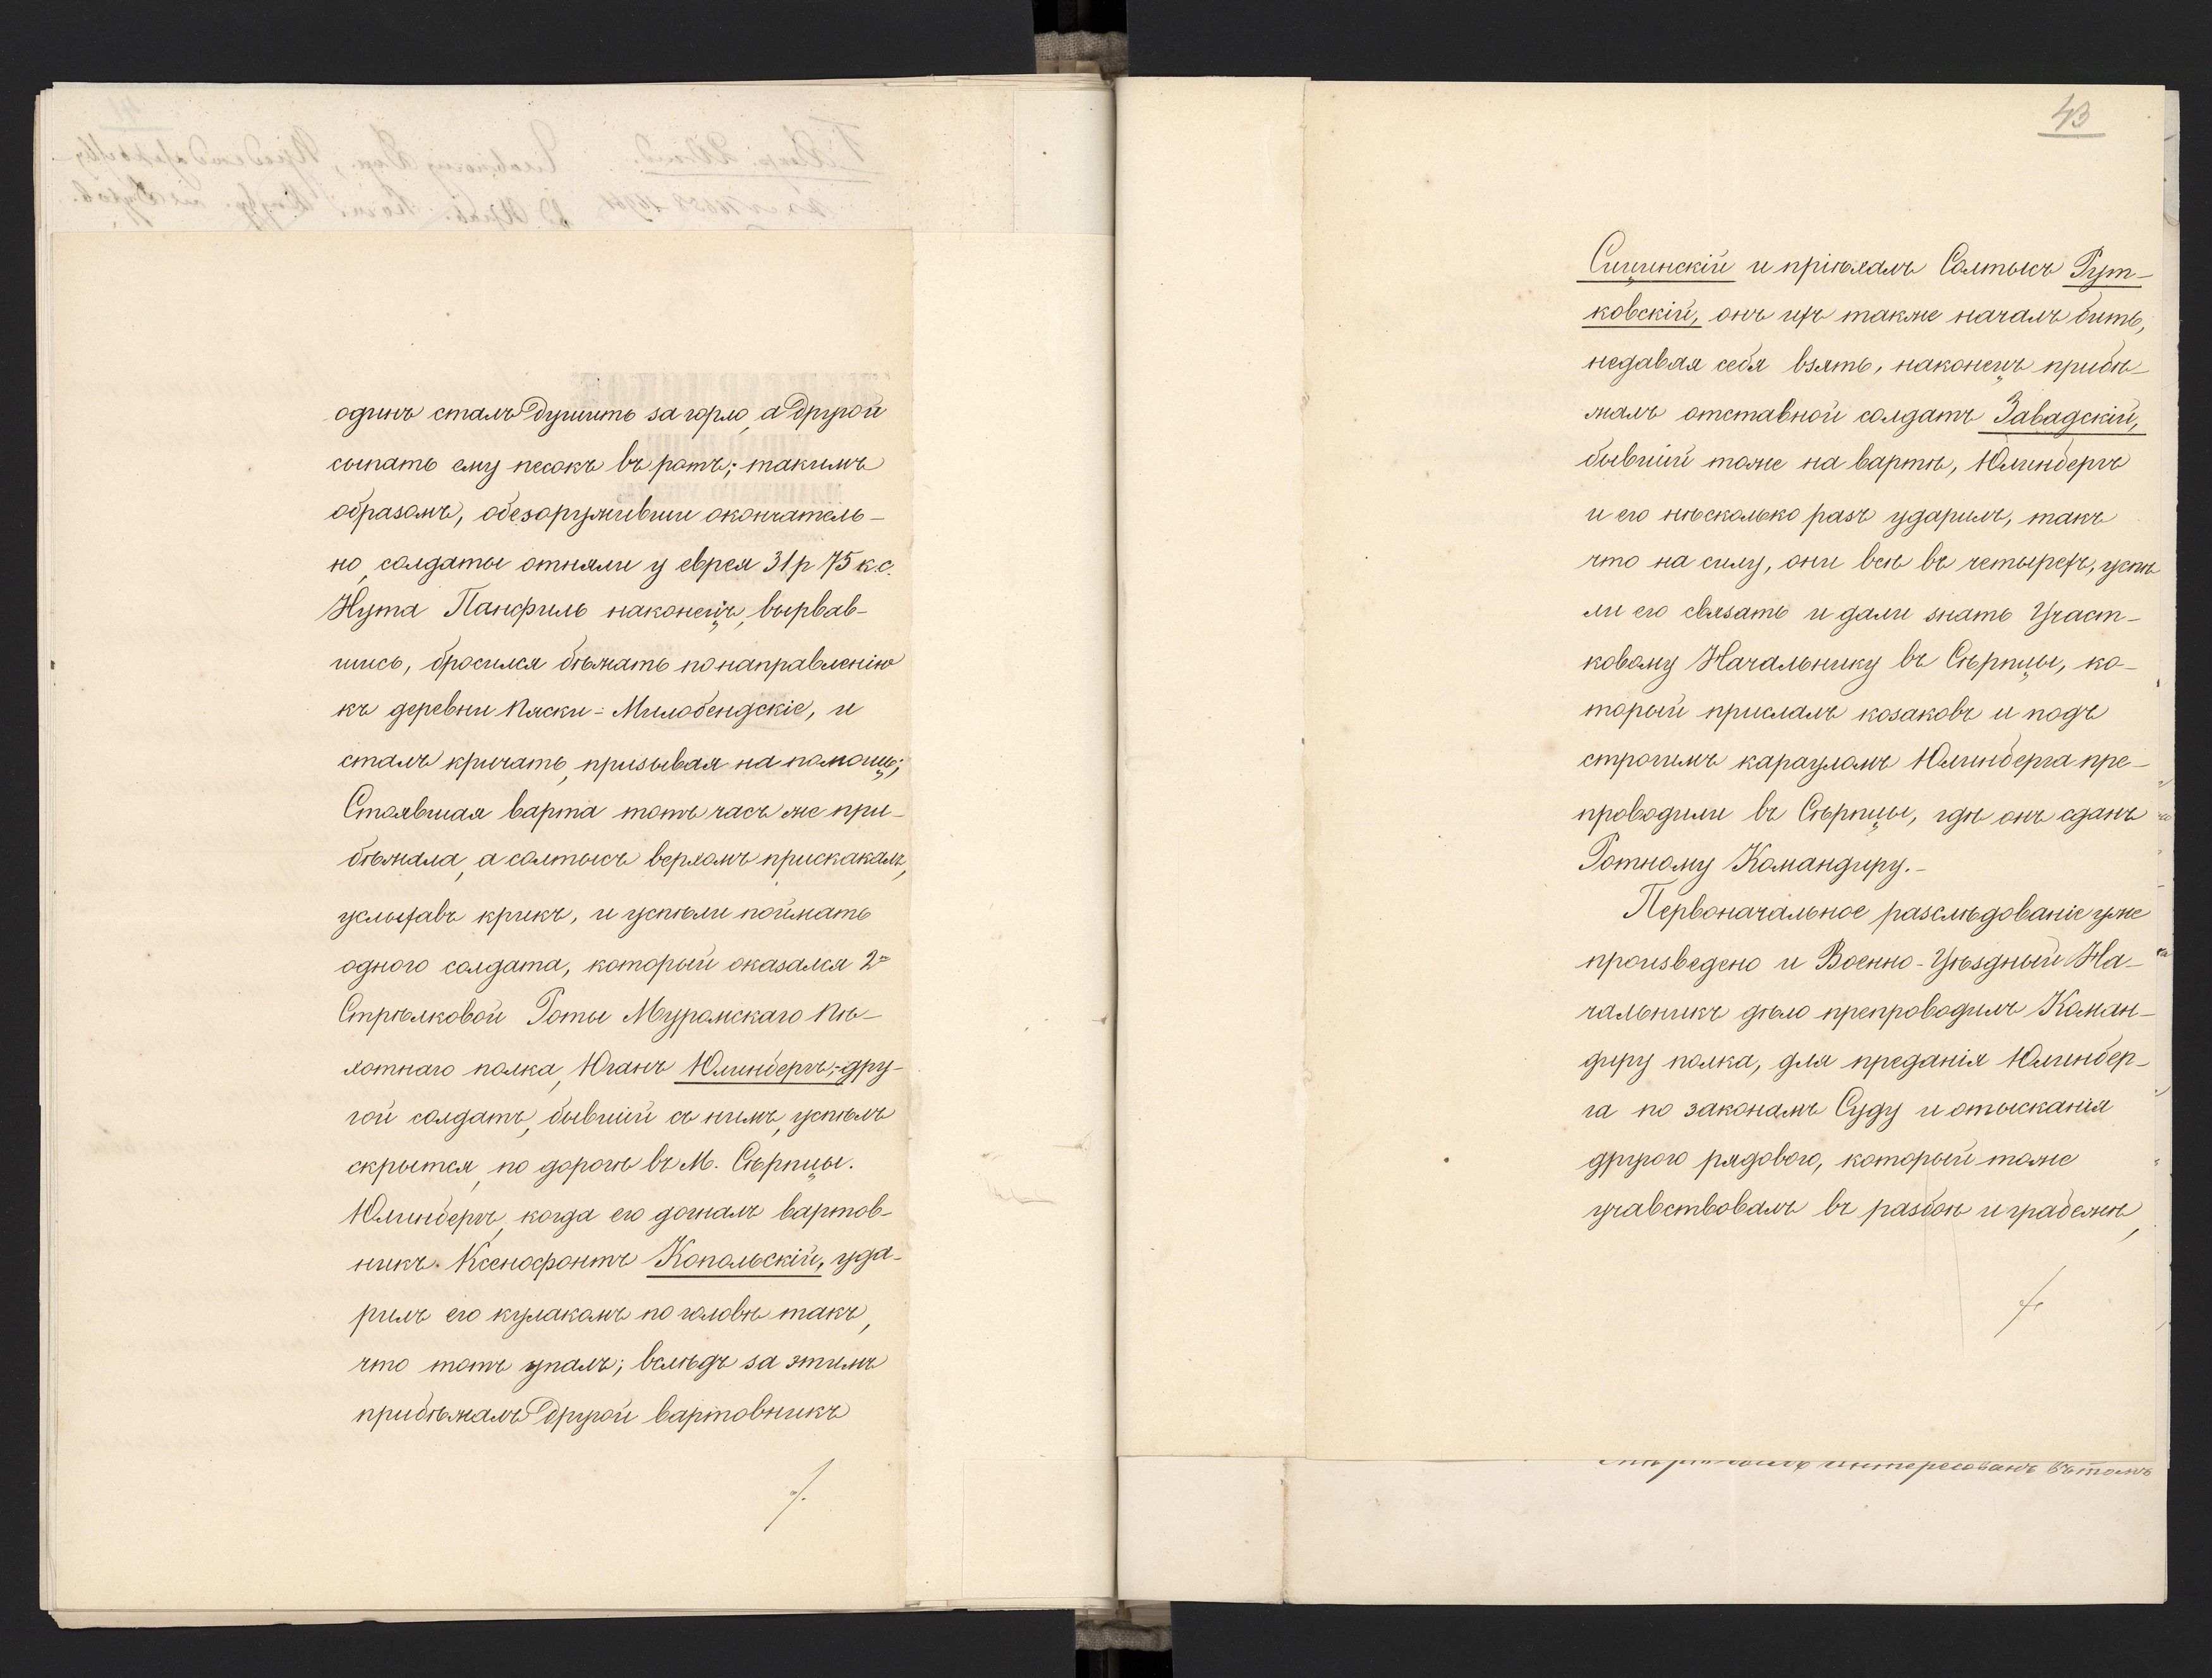 одинъ сталъ душить за горло, а другой
сыпать ему песокъ въ ротъ; такимъ
образомъ, обезоруживши окончатель-
но, солдаты отняли у еврея 31 р 75 к. с.
Нута Панфиль наконецъ, вырвав-
шись, бросился бѣжать по направленію
къ деревни Пяски-Милобендскіе, и
сталъ кричать, призывая на помощь;
Стоявшая варта тотъ часъ же при-
бѣжала, а солтысъ верхомъ прискакалъ,
услыхавъ крикъ, и успѣли поймать
одного солдата, который оказался 2й
Стрѣлковой Роты Муромскаго Пѣ-
хотнаго полка, Юганъ Юлинбергъ; дру-
гой солдатъ, бывшій съ нимъ, успѣлъ
скрытся, по дорогѣ въ М. Сѣрпцы.
Юлинбергъ, когда его догналъ вартов-
никъ Ксенофонтъ Копольскій, уда-
рилъ его кулакомъ по головѣ такъ,
что тотъ упалъ; вслѣдъ за этимъ
прибѣжалъ другой вартовникъ
43
Сицинскій и пріѣхалъ Солтысъ Рут-
ковскій, онъ ихъ также началъ бить,
недавая себя взять, наконецъ прибѣ-
жалъ отставной солдатъ Завадскій,
бывшій тоже на вартѣ, Юлинбергъ
и его нѣсколько разъ ударилъ, такъ
что на силу, они всѣ въ четырехъ, успѣ
ли его связать и дали знать Участ-
ковому Начальнику въ Сѣрпцы, ко-
торый прислалъ козаковъ и подъ
строгимъ карауломъ Юлинберга пре-
проводили въ Сѣрпцы, гдѣ онъ сданъ
Ротному Командиру.-
Первоначальное разслѣдованіе уже
произведено и Военно-Уѣздный На-
чальникъ дѣло препроводилъ Коман-
диру полка, для преданія Юлинбер-
га по законамъ Суду и отысканія
другого рядового, который тоже
учавствовалъ въ разбоѣ и грабежѣ,
интересованъ въ томъ